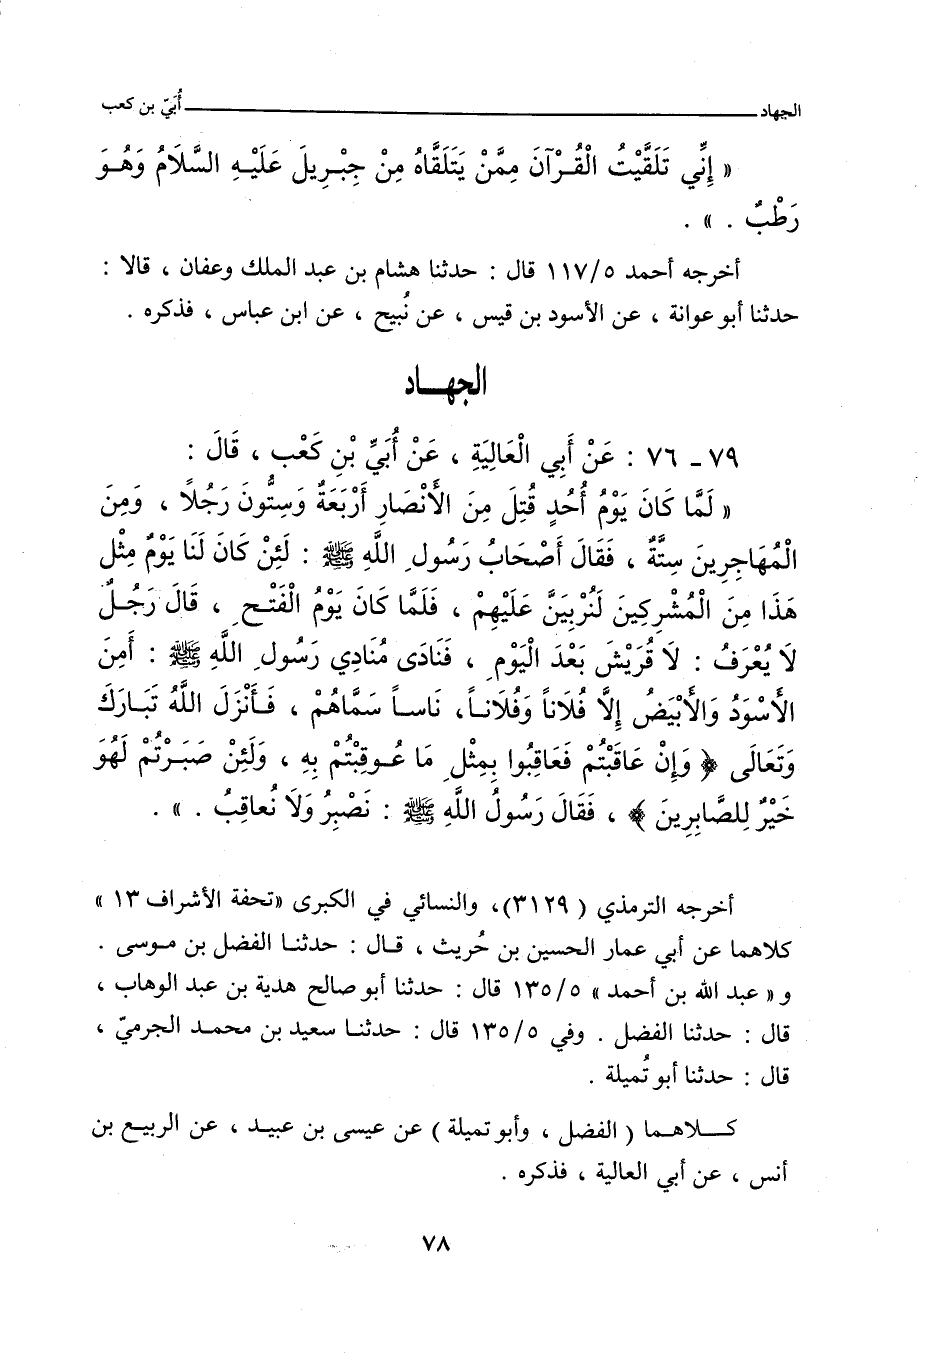 الجهاد أُبَيّ بن كعب
« إِنِّي تَلَقَّيْتُ الْقُرْآنَ مِمَّنْ يَتَلَقَّاهُ مِنْ جِبْرِيلَ عَلَيْهِ السَّلَامُ وَهُوَ
رَطْبٌ . » .
أخرجه أحمد ١١٧/٥ قال : حدثنا هشام بن عبد الملك وعفان ، قالا :
حدثنا أبو عوانة ، عن الأسود بن قيس ، عن نُبيح ، عن ابن عباس ، فذكره .
الجهاد
٧٩ - ٧٦ : عَنْ أَبِي الْعَالِيَةِ ، عَنْ أُبَيِّ بْنِ كَعْبٍ ، قَالَ :
« لَمَّا كَانَ يَوْمُ أُحُدٍ قُتِلَ مِنَ الْأَنْصَارِ أَرْبَعَةٌ وَسِتُّونَ رَجُلًا ، وَمِنَ
الْمُهَاجِرِينَ سِتَّةٌ ، فَقَالَ أَصْحَابُ رَسُولِ اللَّهِ ﷺ : لَئِنْ كَانَ لَنَا يَوْمٌ مِثْلُ
هَذَا مِنَ الْمُشْرِكِينَ لَنُرْبِيَنَّ عَلَيْهِمْ ، فَلَمَّا كَانَ يَوْمُ الْفَتْحِ ، قَالَ رَجُلٌ
لَا يُعْرَفُ : لَا قُرَيْشَ بَعْدَ الْيَوْمِ ، فَنَادَى مُنَادِي رَسُولِ اللَّهِ ﷺ : أَمِنَ
الْأَسْوَدُ وَالْأَبْيَضُ إِلَّا فُلَاناً وَفُلَاناً، نَاساً سَمَّاهُمْ ، فَأَنْزَلَ اللَّهُ تَبَارَكَ
وَتَعَالَى ﴿ وَإِنْ عَاقَبْتُمْ فَعَاقِبُوا بِمِثْلِ مَا عُوقِبْتُمْ بِهِ ، وَلَئِنْ صَبَرْتُمْ لَهُوَ
خَيْرٌ لِلصَّابِرِينَ ﴾ ، فَقَالَ رَسُولُ اللَّهِ ﷺ : نَصْبِرُ وَلَا نُعاقِبُ . » .
أخرجه الترمذي ( ٣١٢٩)، والنسائي في الكبرى «تحفة الأشراف ١٣ »
كلاهما عن أبي عمار الحسين بن حُريث ، قال : حدثنا الفضل بن موسى .
و« عبد الله بن أحمد » ١٣٥/٥ قال : حدثنا أبو صالح هدية بن عبد الوهاب ،
قال : حدثنا الفضل . وفي ١٣٥/٥ قال : حدثنا سعيد بن محمد الجرميّ ،
قال : حدثنا أبو تُميلة .
كلاهما ( الفضل ، وأبو تميلة ) عن عيسى بن عبيد ، عن الربيع بن
أنس ، عن أبي العالية ، فذكره .
٧٨